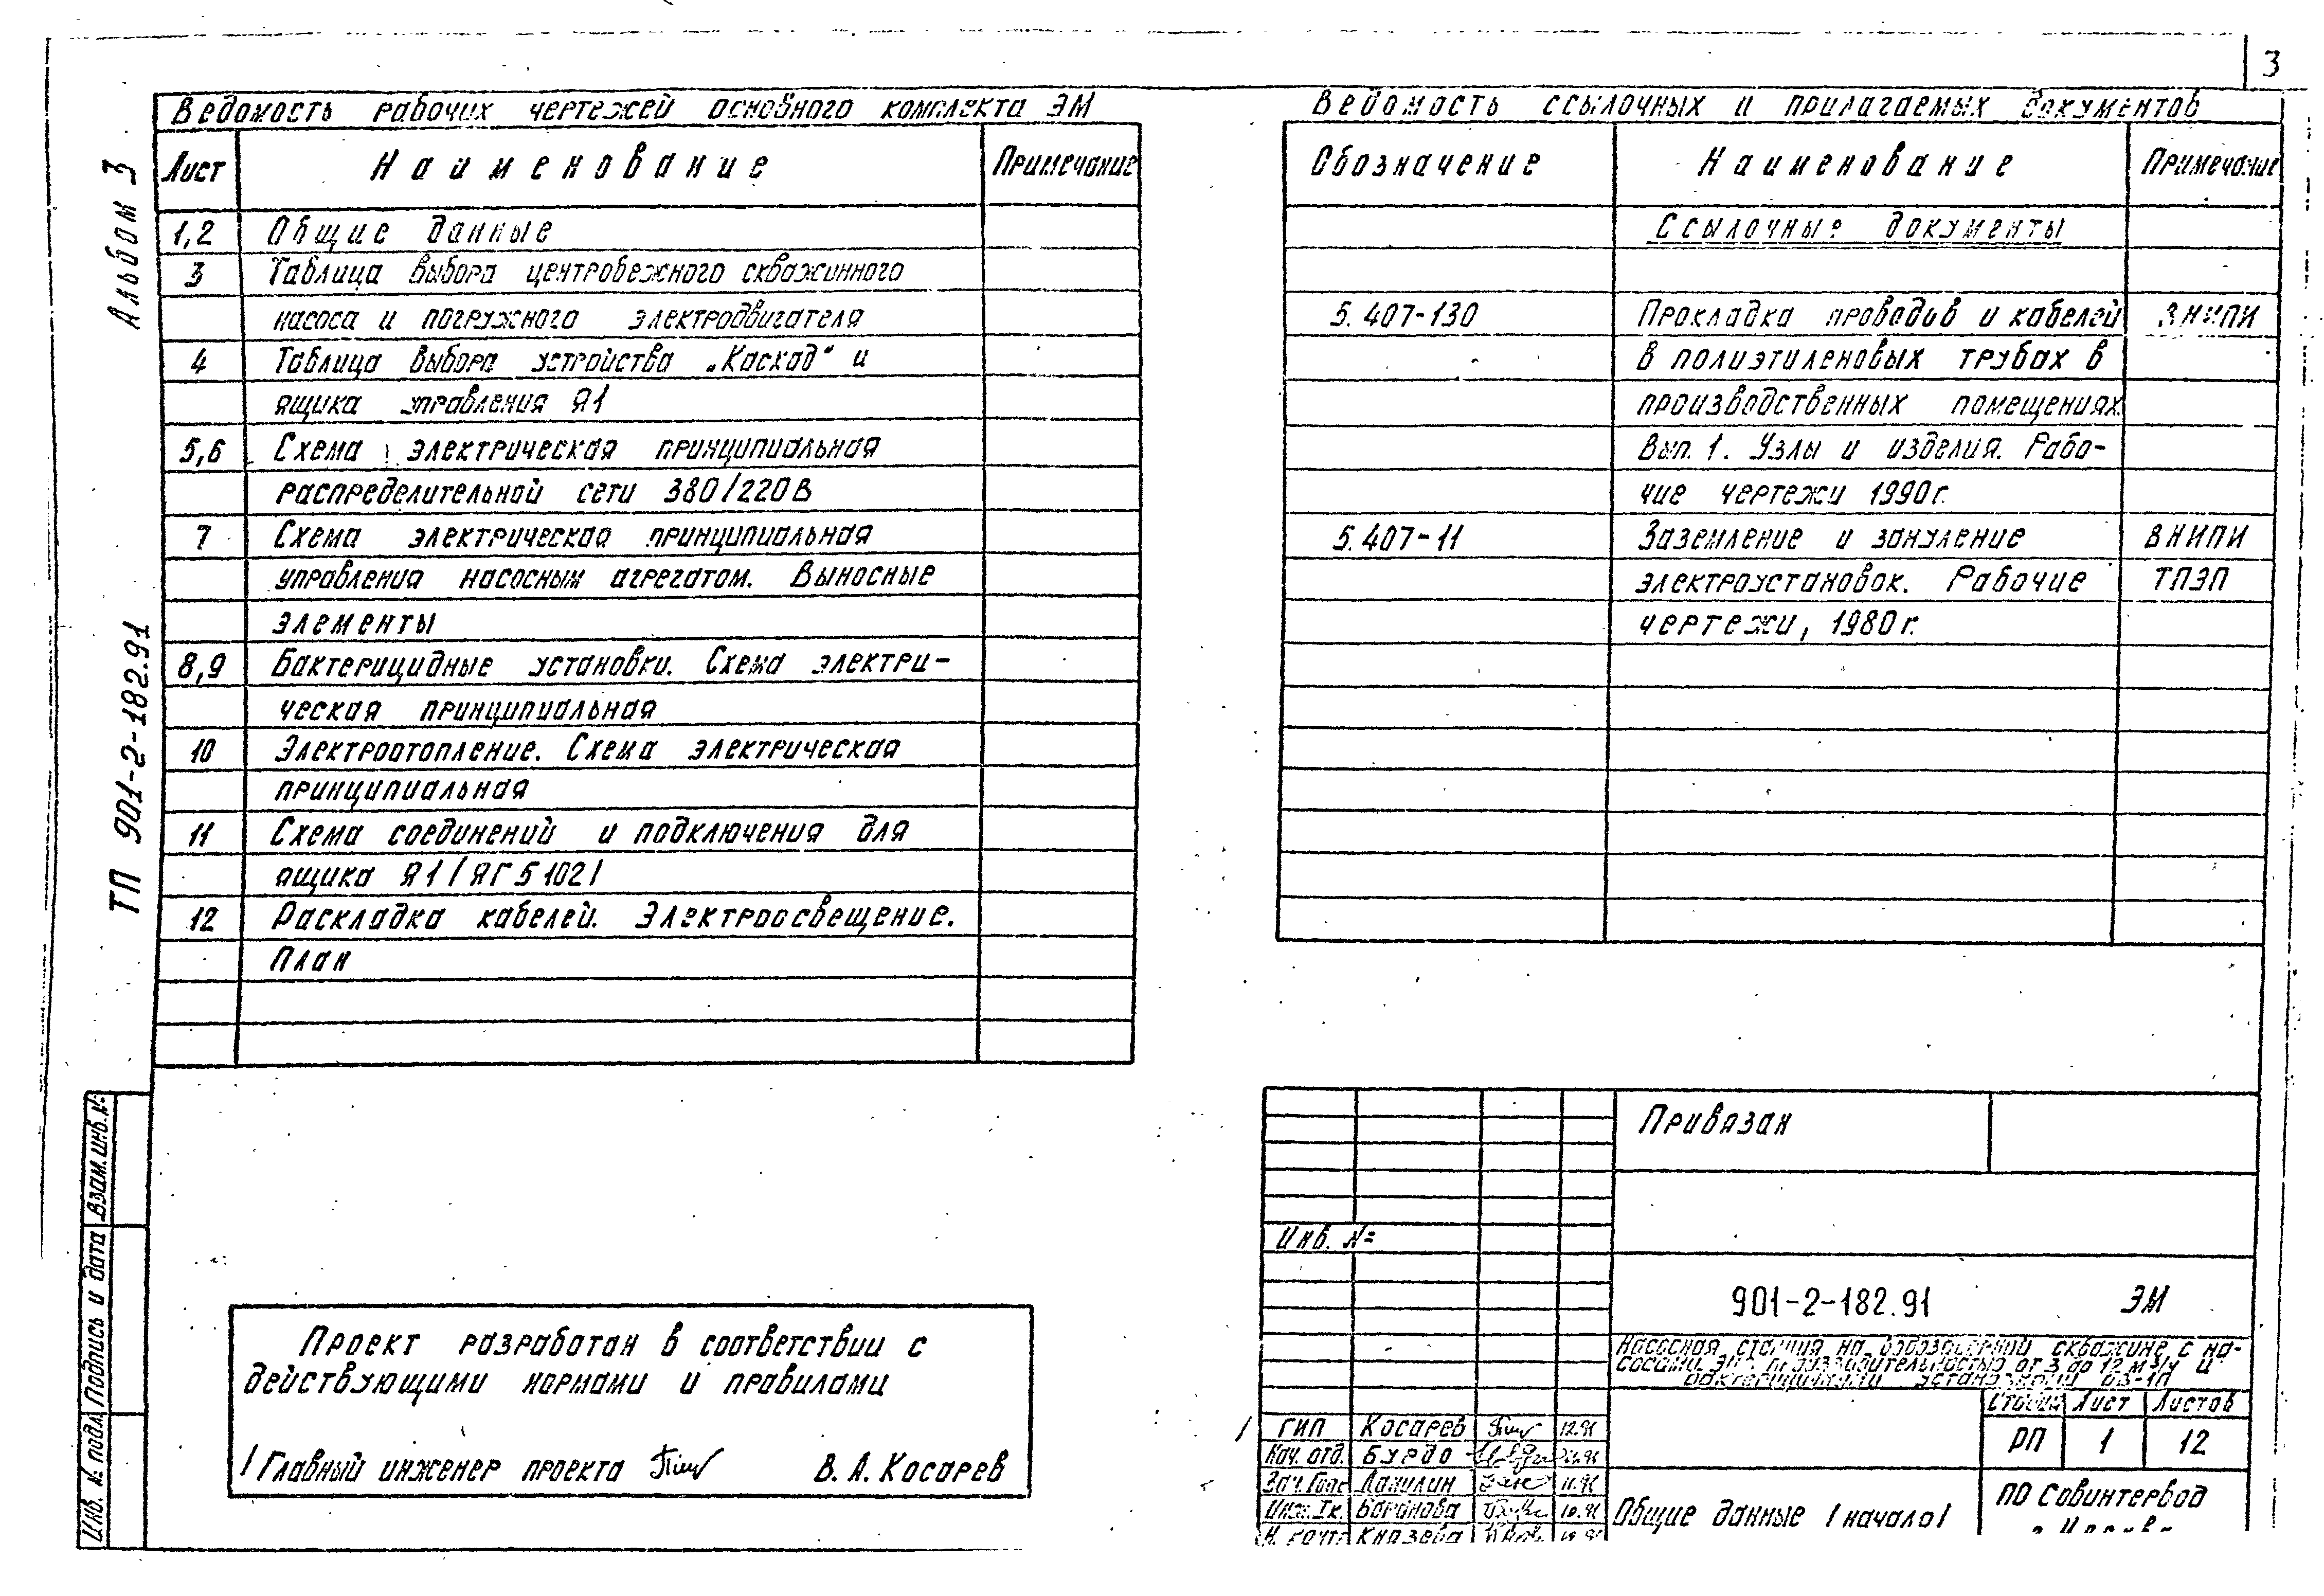 3
Альбом 3
ТП 901-2-182.91
Ведомость рабочих чертежей основного комплекта ЭМ
Лист Наименование Примечание
1,2 Общие данные
3 Таблица выбора центробежного скважинного
насоса и погружного электродвигателя
4 Таблица выбора устройства „Каскад" и
ящика управления Я1
5,6 Схема электрическая принципиальная
распределительной сети 380/220В
7 Схема электрическая принципиальная
управления насосным агрегатом. Выносные
элементы
8,9 Бактерицидные установки. Схема электри-
ческая принципиальная
10 Электроотопление. Схема электрическая
принципиальная
11 Схема соединений и подключения для
ящика Я1 /ЯГ5102/
12 Раскладка кабелей. Электроосвещение.
План
Ведомость ссылочных и прилагаемых документов
Обозначение Наименование Примечание
Ссылочные документы
5.407-130 Прокладка проводов и кабелей ВНИПИ
в полиэтиленовых трубах в
производственных помещениях.
Вып. 1. Узлы и изделия. Рабо-
чие чертежи 1990г.
5.407-11 Заземление и зануление ВНИПИ
электроустановок. Рабочие ТПЭП
чертежи, 1980г.
Взам. инв. №
Подпись и дата
Инв. № подл.
Проект разработан в соответствии с
действующими нормами и правилами
/Главный инженер проекта В. А. Косарев
Привязан
Инв. №
901-2-182.91 ЭМ
Насосная станция на водозаборной скважине с на-
сосами ЭЦВ производительностью от 3 до 12 м3/ч и
установкой ОВ-1П
Стадия Лист Листов
РП 1 12
ГИП Косарев 12.91
Нач. отд. Бурдо
Данилин 11.91
Инж. Iк. Баранова 10.91
Н. конт. Князева
Общие данные /начало/
ПО Совинтервод